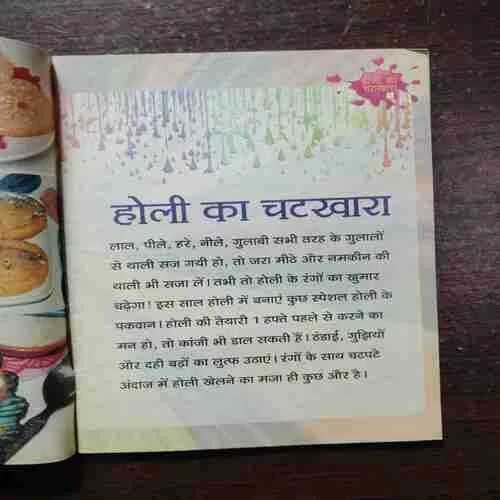 होली का
चटखारा
होली का चटखारा
लाल, पीले, हरे, नीले, गुलाबी सभी तरह के गुलालों
से थाली सज गयी हो, तो जरा मीठे और नमकीन की
थाली भी सजा लें। तभी तो होली के रंगों का खुमार
चढ़ेगा! इस साल होली में बनाएं कुछ स्पेशल होली के
पकवान। होली की तैयारी 1 हफ्ते पहले से करने का
मन हो, तो कांजी भी डाल सकती हैं। ठंडाई, गुझियों
और दही बड़ों का लुत्फ उठाएं। रंगों के साथ चटपटे
अंदाज में होली खेलने का मजा ही कुछ और है।